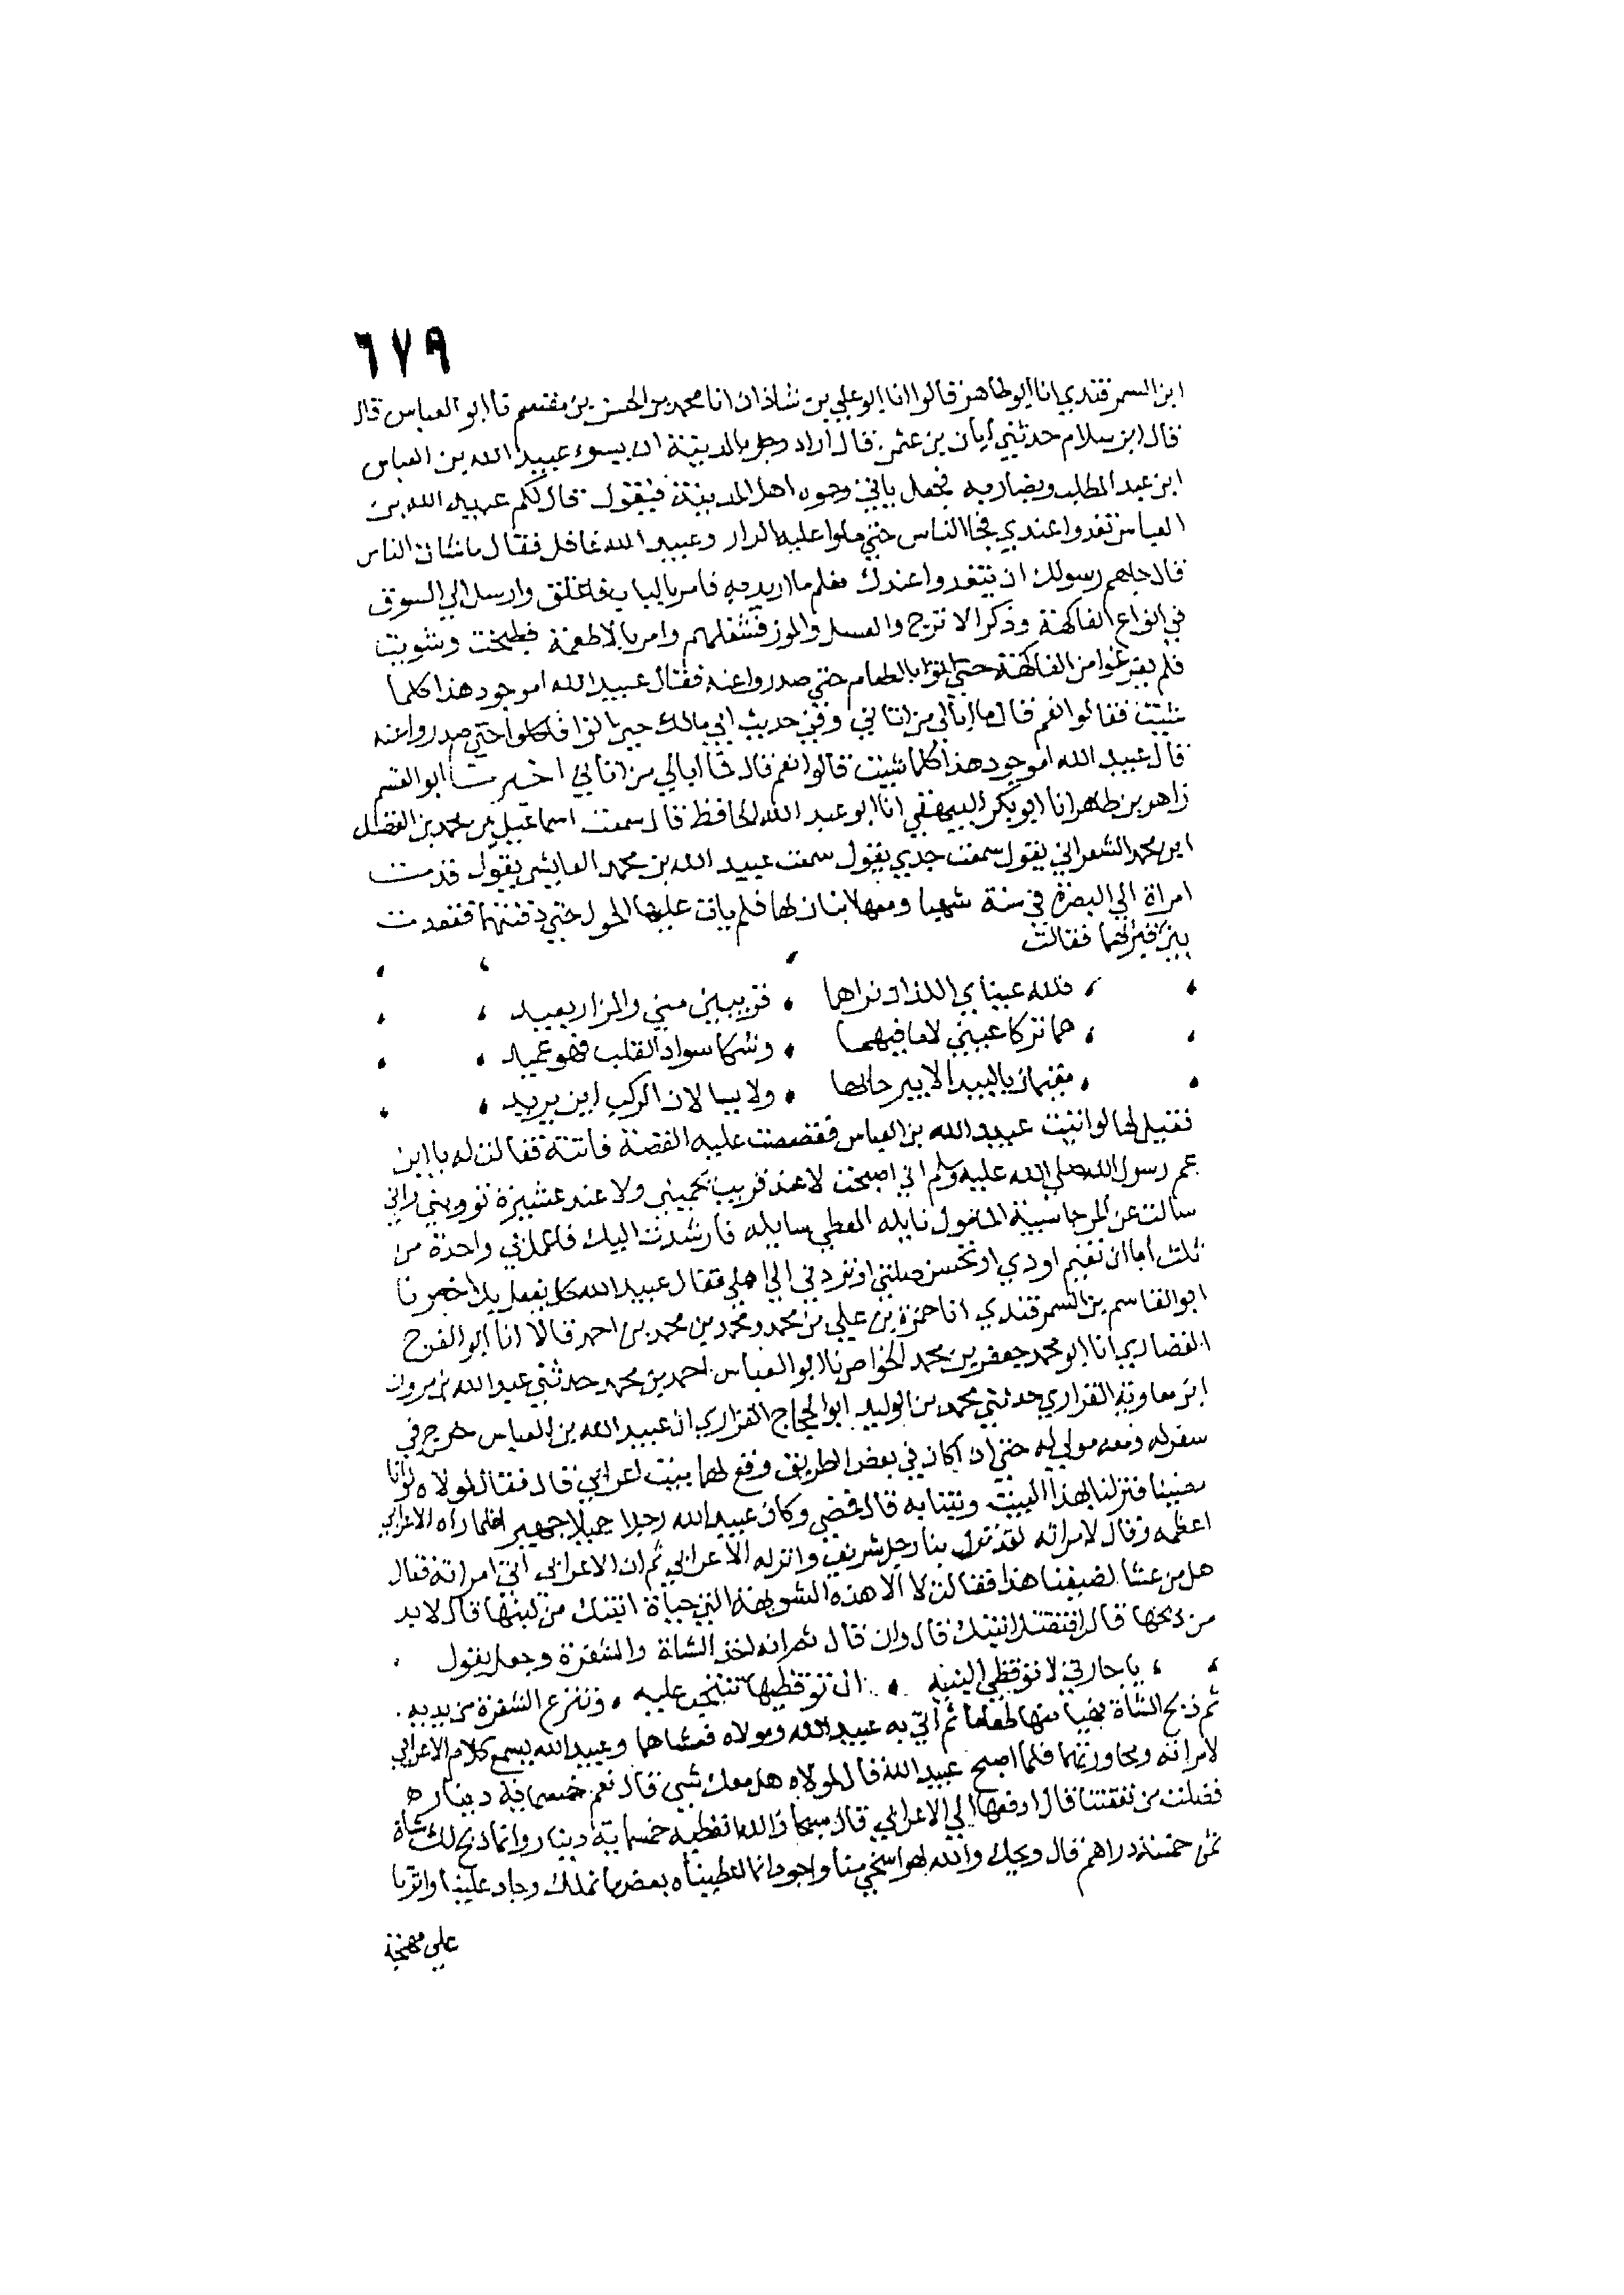 ٦٧٩
ابن السمرقندي انا ابو طاهر قالوا انا ابو علي بن شاذان انا محمد بن الحسن بن مقسم نا ابو العباس قال
قال ابن سلام حدثني ابان بن عثمن قال اراد رجل بالمدينة ان يسوء عبيد الله بن العباس
ابن عبد المطلب ويضار به فجعل ياتي وجوه اهل المدينة فيقول قال لكم عبيد الله بن
العباس تغدوا عندي فجا الناس حتي ملوا عليه الدار وعبيد الله غافل فقال ما شان الناس
قال جاهم رسولك ان يتغدوا عندك فعلم ما اريد به فامر بالباب فاغلق وارسل الي السوق
في انواع الفاكهة وذكر الاترج والعسل والموز فشغلهم وامر بالاطعمة فطبخت وشويت
فلم يفرغوا من الفاكهة حتي اتوا بالطعام حتي صدروا عنه فقال عبيد الله اموجود هذا كلما
شيت فقالوا نعم قال ما ابالي من اتاني وفي حديث ابي مالك حين اتوا فاكلوا حتي صدروا عنه
قال عبيد الله اموجود هذا كلما شيت قالوا نعم قال فما ابالي من اتاني اخبرنا ابو القسم
زاهر بن طاهر انا ابو بكر البيهقي انا ابو عبد الله الحافظ قال سمعت اسماعيل بن محمد بن الفضل
ابن محمد الشعراني يقول سمعت جدي يقول سمعت عبيد الله بن محمد العايشي يقول قدمت
امراة الي البصرة في سنة شهبا ومعها ابنان لها فلم يات عليها الحول حتي دفنتهما فقعدت
بين قبريهما فقالت
فلله عيناي اللذان نراهما ، قريبين مني والمزار بعيد
هما تركا عيني لا ما فيهما ، وشكا سواد القلب فهو عميد
مقيمان بالبيدا لا يبرحانها ، ولا يسالان الركب اين يريد
فقيل لها لو اتيت عبيد الله بن العباس فقصصت عليه القصة فاتته فقالت له يا ابن
عم رسول الله صلي الله عليه وسلم اني اصبحت لا عند قريب يحميني ولا عند عشيرة توويني واني
سالت عن المرجا سيبه المامول نايله المعطي سايله فارشدت اليك فاعمل في واحدة من
ثلث اما ان تقيم اودي او تحسن صلتي او تردني الي اهلي فقال عبيد الله كل يفعل بك اخبرنا
ابو القاسم بن السمرقندي انا حمزة بن علي بن محمد ومحمد بن محمد بن احمد قالا انا ابو الفرج
الغضاري انا ابو محمد جعفر بن محمد الخواص نا ابو العباس احمد بن محمد حدثني عبد الله بن مروان
ابن معاوية الفزاري حدثني محمد بن الوليد ابو الحجاج الفزاري ان عبيد الله بن العباس خرج في
سفر له ومعه مولي له حتي اذا كان في بعض الطريق وقع لهما بيت اعرابي قال فقال لمولاه لو انا
مضينا فنزلنا بهذا البيت وبتنا به قال فمضي وكان عبيد الله رجلا جميلا جهيرا فلما راه الاعرابي
اعظمه وقال لامراته لقد نزل بنا رجل شريف وانزله الاعرابي ثم ان الاعرابي اتي امراته فقال
هل من عشا لضيفنا هذا فقالت لا الا هذه الشويهة التي حياة ابنتك من لبنها قال لا بد
من ذبحها قالت افتقتل ابنتك قال وان قال ثم انه اخذ الشاة والشفرة وجعل يقول
يا جارتي لا توقظي البنيه ، ان توقظيها تنتحب عليه ، وتنزع الشفرة من يديه
ثم ذبح الشاة فهيا منها طعاما ثم اتي به عبيد الله ومولاه فعشاهما وعبيد الله يسمع كلام الاعرابي
لامراته ومحاورتهما فلما اصبح عبيد الله قال لمولاه هل معك شي قال نعم خمسماية دينار
فضلت من نفقتنا قال ادفعها الي الاعرابي قال سبحان الله اتعطيه خمسماية دينار وانما ذبح لك شاة
ثمن خمسة دراهم قال ويحك والله لهو اسخي منا واجود انما اعطيناه بعض ما نملك وجاد علينا واثرنا
علي مهجة